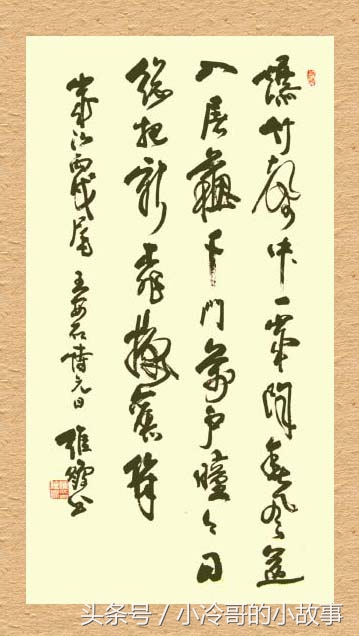 爆竹聲中一歲除春風送
入屠蘇千門萬戶曈々日
總把新桃換舊符
歲次丙戌尾 王安石詩元日
头条号 / 小冷哥的小故事